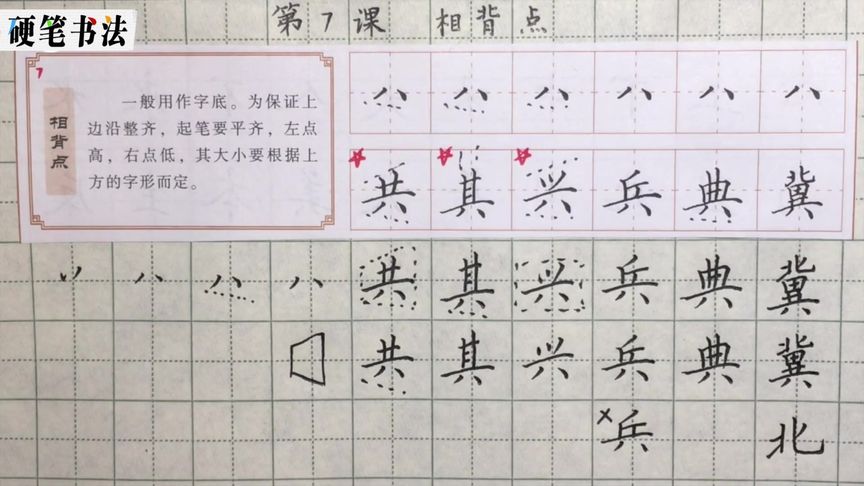 硬笔书法
第7课 相背点
7
相背点
一般用作字底。为保证上
边沿整齐，起笔要平齐，左点
高，右点低，其大小要根据上
方的字形而定。
八 八 八 八 八 八
共 其 兴 兵 典 冀
八 八 八 共 其 兴 兵 典 冀
共 其 兴 兵 典 冀
兵 北